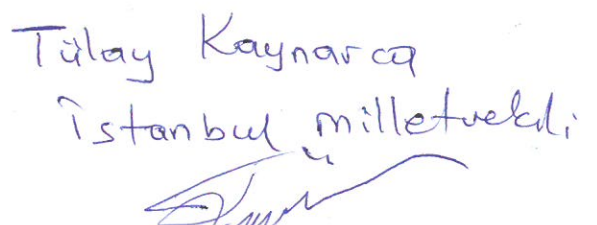 Tülay Kaynarca
İstanbul milletvekili